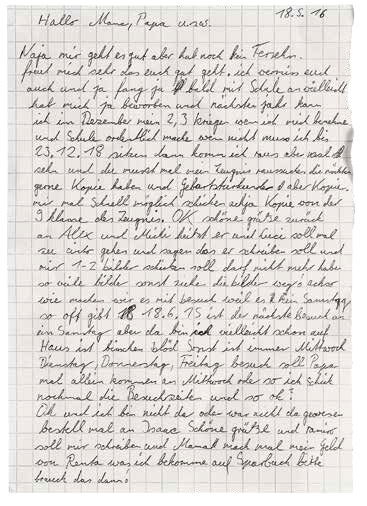 18.5.16
Hallo Mama, Papa u.s.w.
Naja mir geht es gut aber hab noch kein Fersehn.
freut mich sehr das euch gut geht, ich vermiss euch
auch und ja fang ja bald mit Schule an vielleicht
hat mich ja beworben und nächster Jahr kann
ich im Dezember mein 2,3 kriegen wen ich mich benehme
und Schule ordentlich mache wen nicht muss ich bis
23.12.18 sitzen dann komm ich raus aber
sehn und die musst mal mein Zeugnis raussuchen die möchten
gerne Kopie haben und Geburtsurkunde aber Kopie.
mir mal Schnell möglich schicken achja Kopie von der
9 klasse des Zeugnis. OK schöne grüße zurück
an Alex und Michi hübst er und soll mal
zu gehen und sagen das er schreiben soll und
mir 1-2 bilder schicken soll darf nicht mehr haben
so viele bilder sonst ziehe die bilder weg achso
wie machen wir es mit besuch weil es kein Samstag
so oft gibt 18.6.15 ist der nächste Besuch an
ein Samstag aber da bin ich vielleicht schon auf
Haus ist bischen blöd Sonst ist immer Mittwoch
Dienstag, Donnerstag, Freitag besuch soll Papa
mal allein kommen an Mittwoch oder so ich Schick
nochmal die Besuchzeiten und so ok?
Ok und ich bin nicht da oder war nicht da gewesen
bestell mal an Isaac Schöne grüße und
soll mir schreiben und Mama mach mal mein Geld
von Rente was ich bekomme auf Sparbuch bitte
brauch das dann!